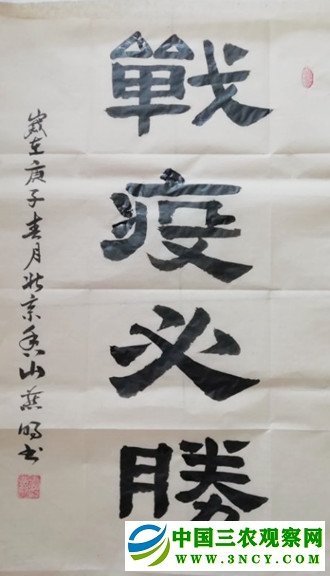 戰疫必勝
歲在庚子春月北京香山燕明书
中国三农观察网
WWW.3NCY.COM